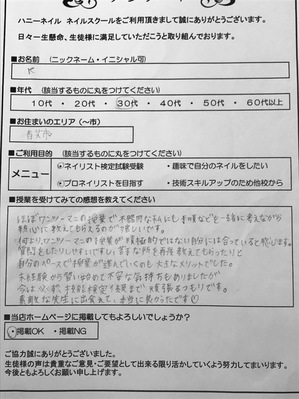 ハニーネイル ネイルスクールをご利用頂きまして誠にありがとうございます。
日々一生懸命、生徒様に満足していただこうと取り組んでおります。
■お名前 (ニックネーム・イニシャル可)
K
■年代 (該当するものに丸をつけてください)
10代 ・ 20代 ・ 30代 ・ 40代 ・ 50代 ・ 60代以上
■お住まいのエリア(〜市)
春日市
■ご利用目的 (該当するものに丸をつけてください)
メニュー
・ネイリスト検定試験受験 ・趣味で自分のネイルをしたい
・プロネイリストを目指す ・技術スキルアップのため他校から
■授業を受けてみての感想を教えてください
ほぼワンツーマンの授業で不器用な私にも手順などを一緒に考えながら
熱心に教えてもらえるのが嬉しいです。
何よりワンツーマンの授業が 自分には合っていると感じます。
質問をたくさんしやすいですし、苦手な所を再度教えてもらったりと
自分のペースで授業が進んでいくのも大きなメリットでした。
未経験から習い始めて不安な気持ちもありましたが
今は 検定 級まで頑張るつもりです。
素敵な先生に出会えて、本当に良かったです♡
■当店ホームページに掲載してもよろしいでしょうか?
掲載OK ・ 掲載NG
ご協力誠にありがとうございました。
生徒様の声は貴重なご意見・ご要望として出来る限り活かしていくよう努力してまいります。
今後ともよろしくお願い申し上げます。